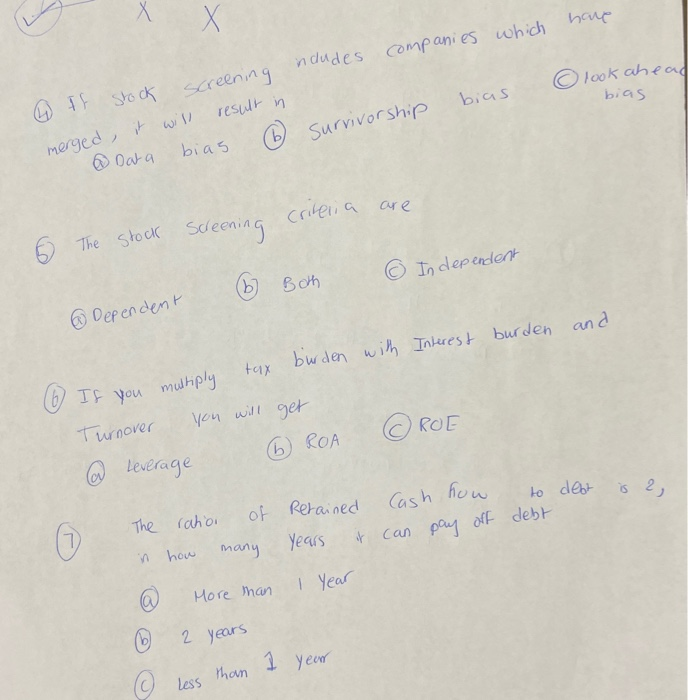 X X
④ If stock screening ncludes companies which have
merged, it will result n
ⓐ Data bias ⓑ Survivorship bias ⓒ look ahead
bias
⑤ The stock screening criteria are
ⓐ Dependent ⓑ Both ⓒ Independent
⑥ If you multiply tax burden with Interest burden and
Turnover you will get
ⓐ Leverage ⓑ ROA ⓒ ROE
⑦ The ratio of Retained Cash flow to debt is 2,
in how many Years it can pay off debt
ⓐ More than 1 Year
ⓑ 2 years
ⓒ Less than 1 year